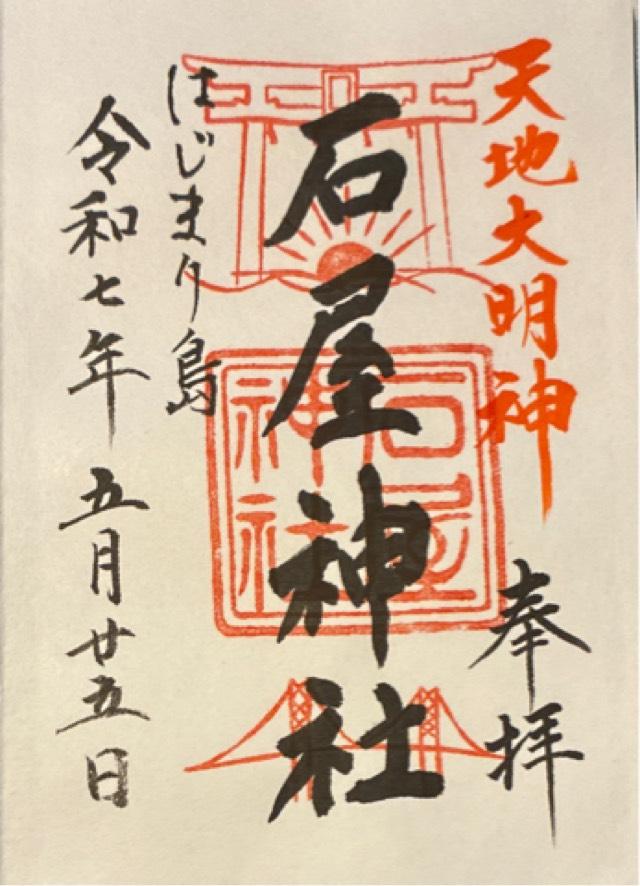 天地大明神
奉拝
石屋神社
石屋
神社
はじまり島
令和七年 五月廿五日